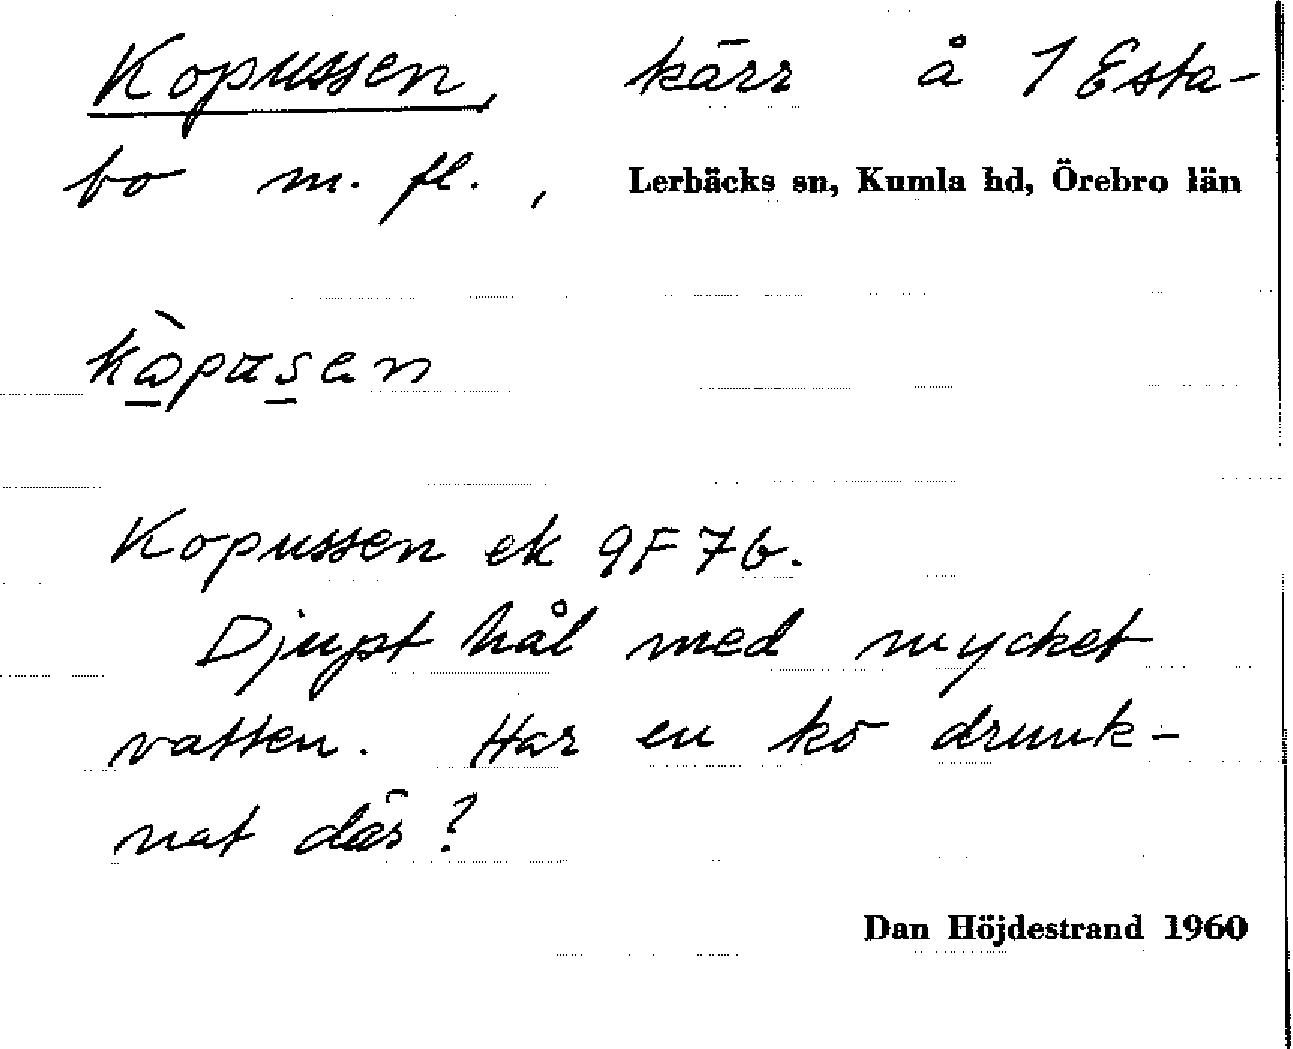 Kopussen, kärr å 1 Esta-
bo m. fl., Lerbäcks sn, Kumla hd, Örebro län
Kopussen ek 9F7b.
Djupt hål med mycket
vatten. Har en ko drunk-
nat där?
Dan Höjdestrand 1960